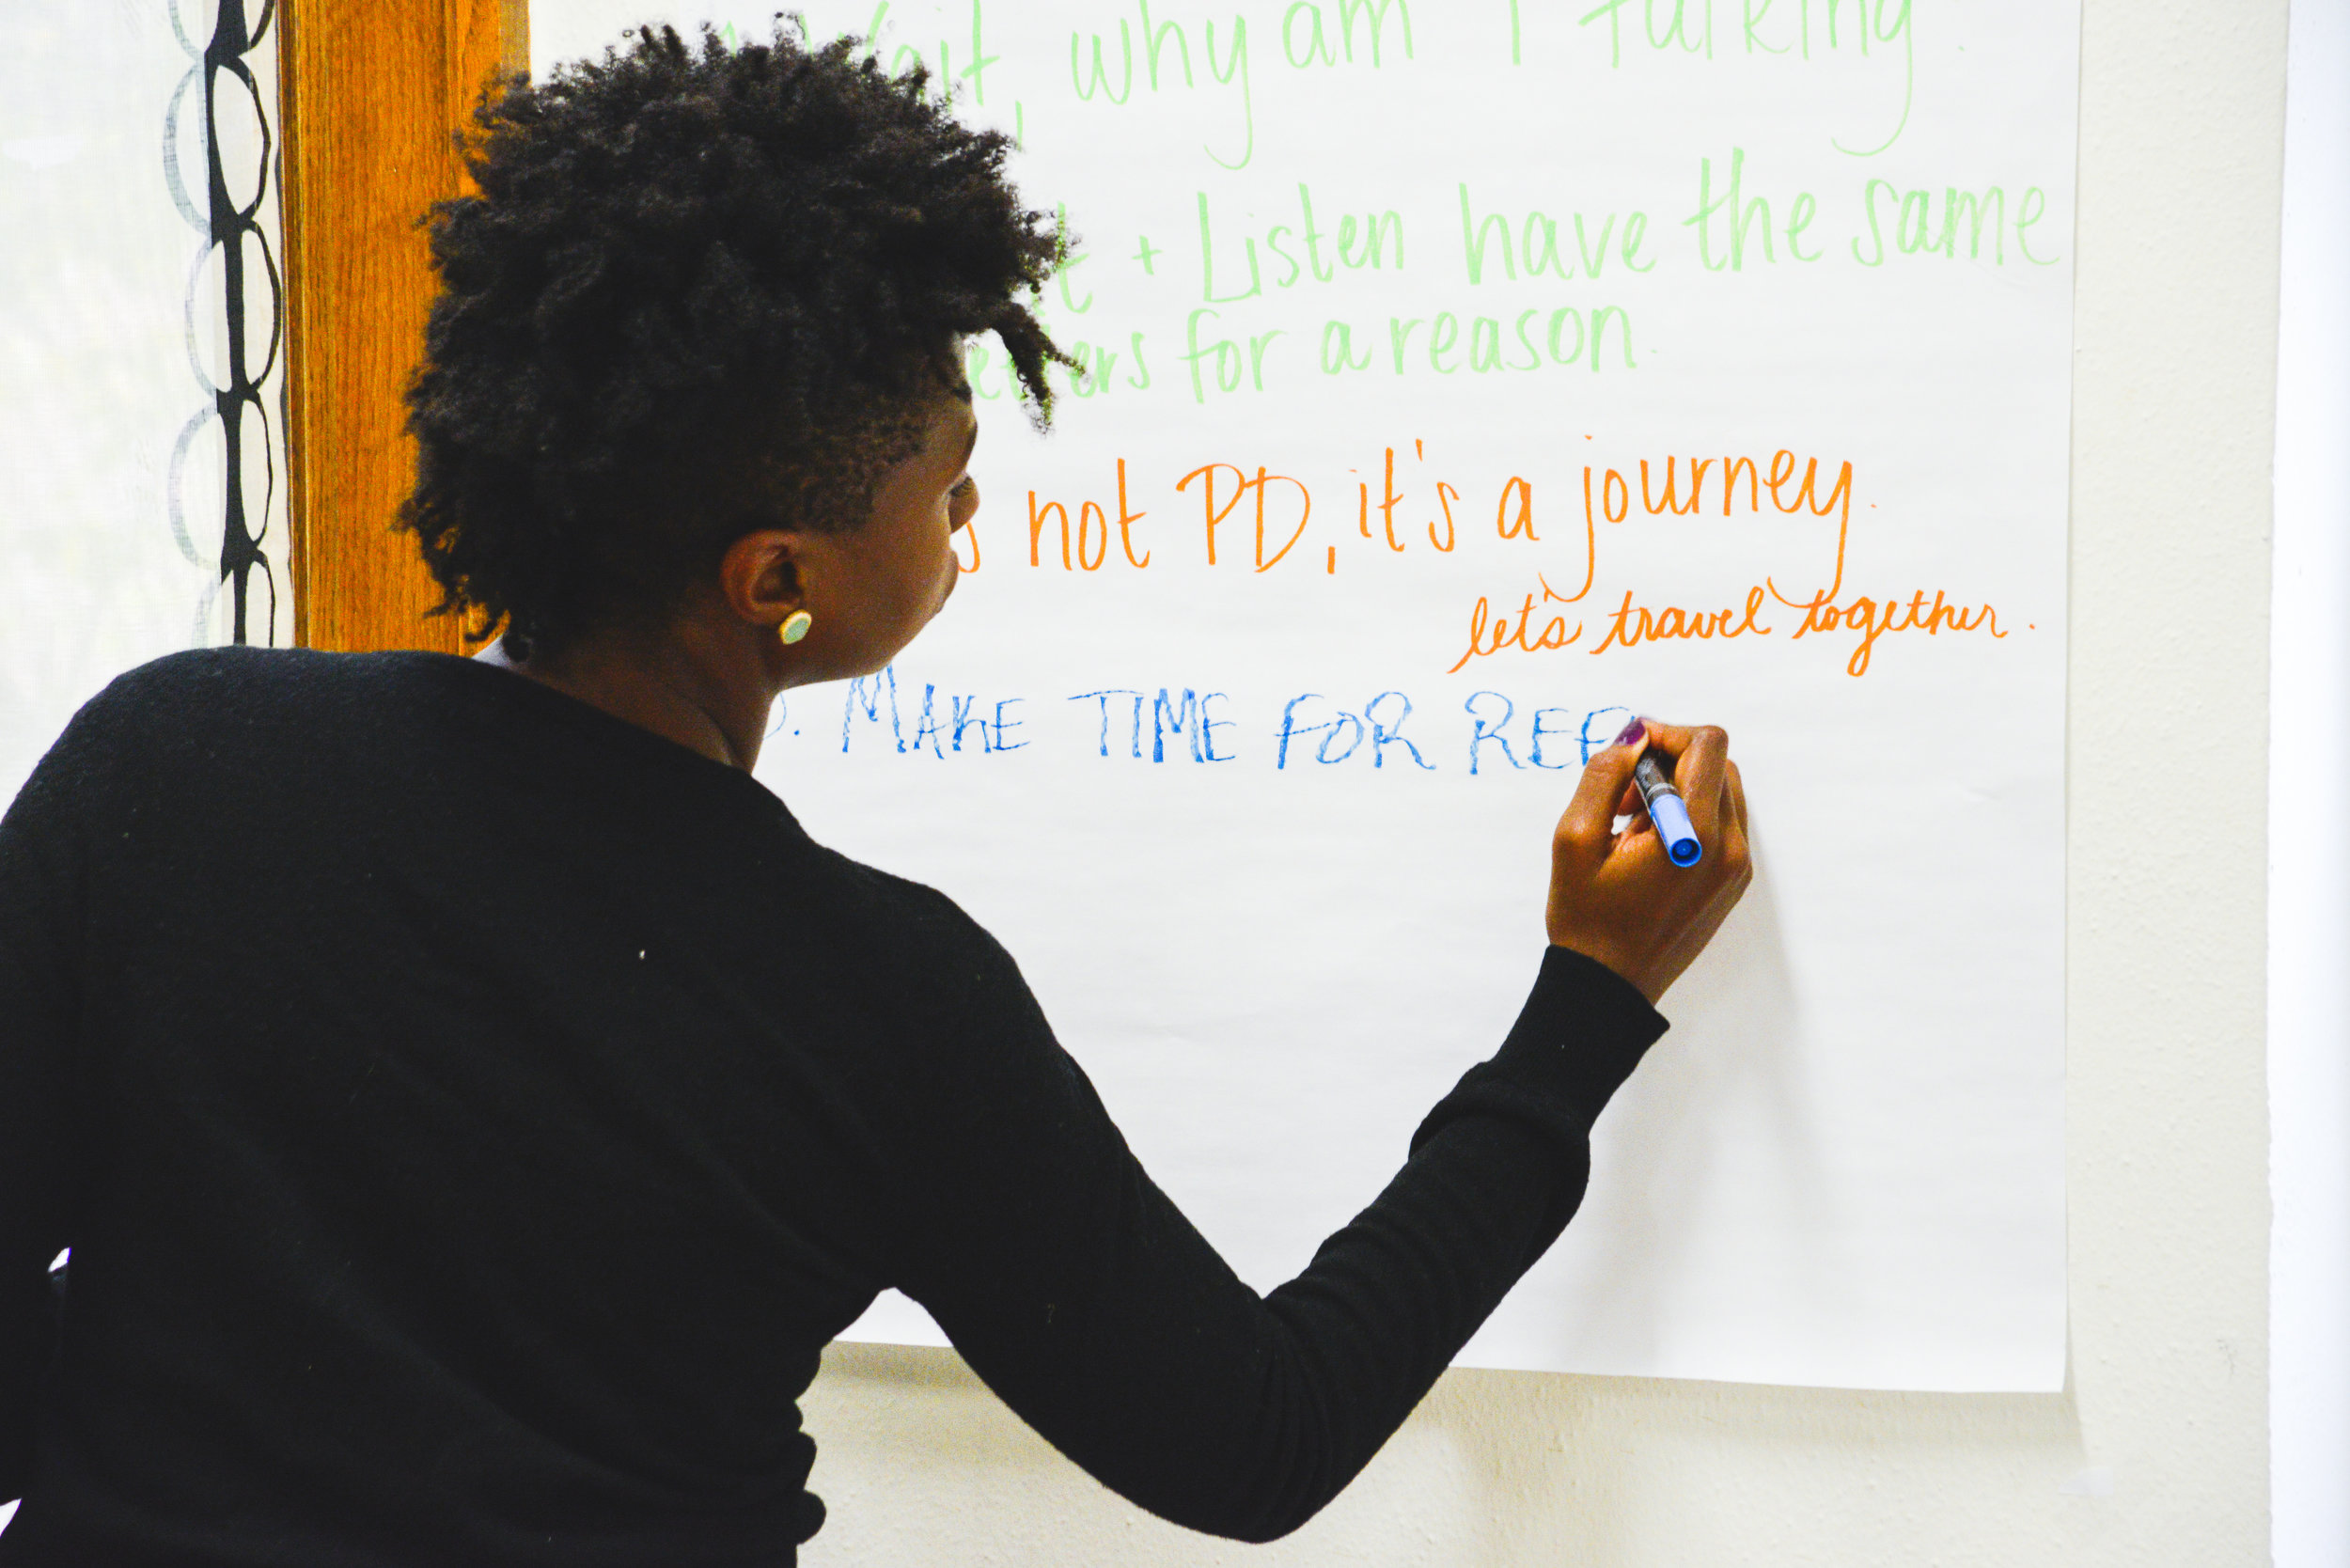 Wait, why am I talking
+ Listen have the same
for a reason.
not PD, it's a journey.
let's travel together.
MAKE TIME FOR REF